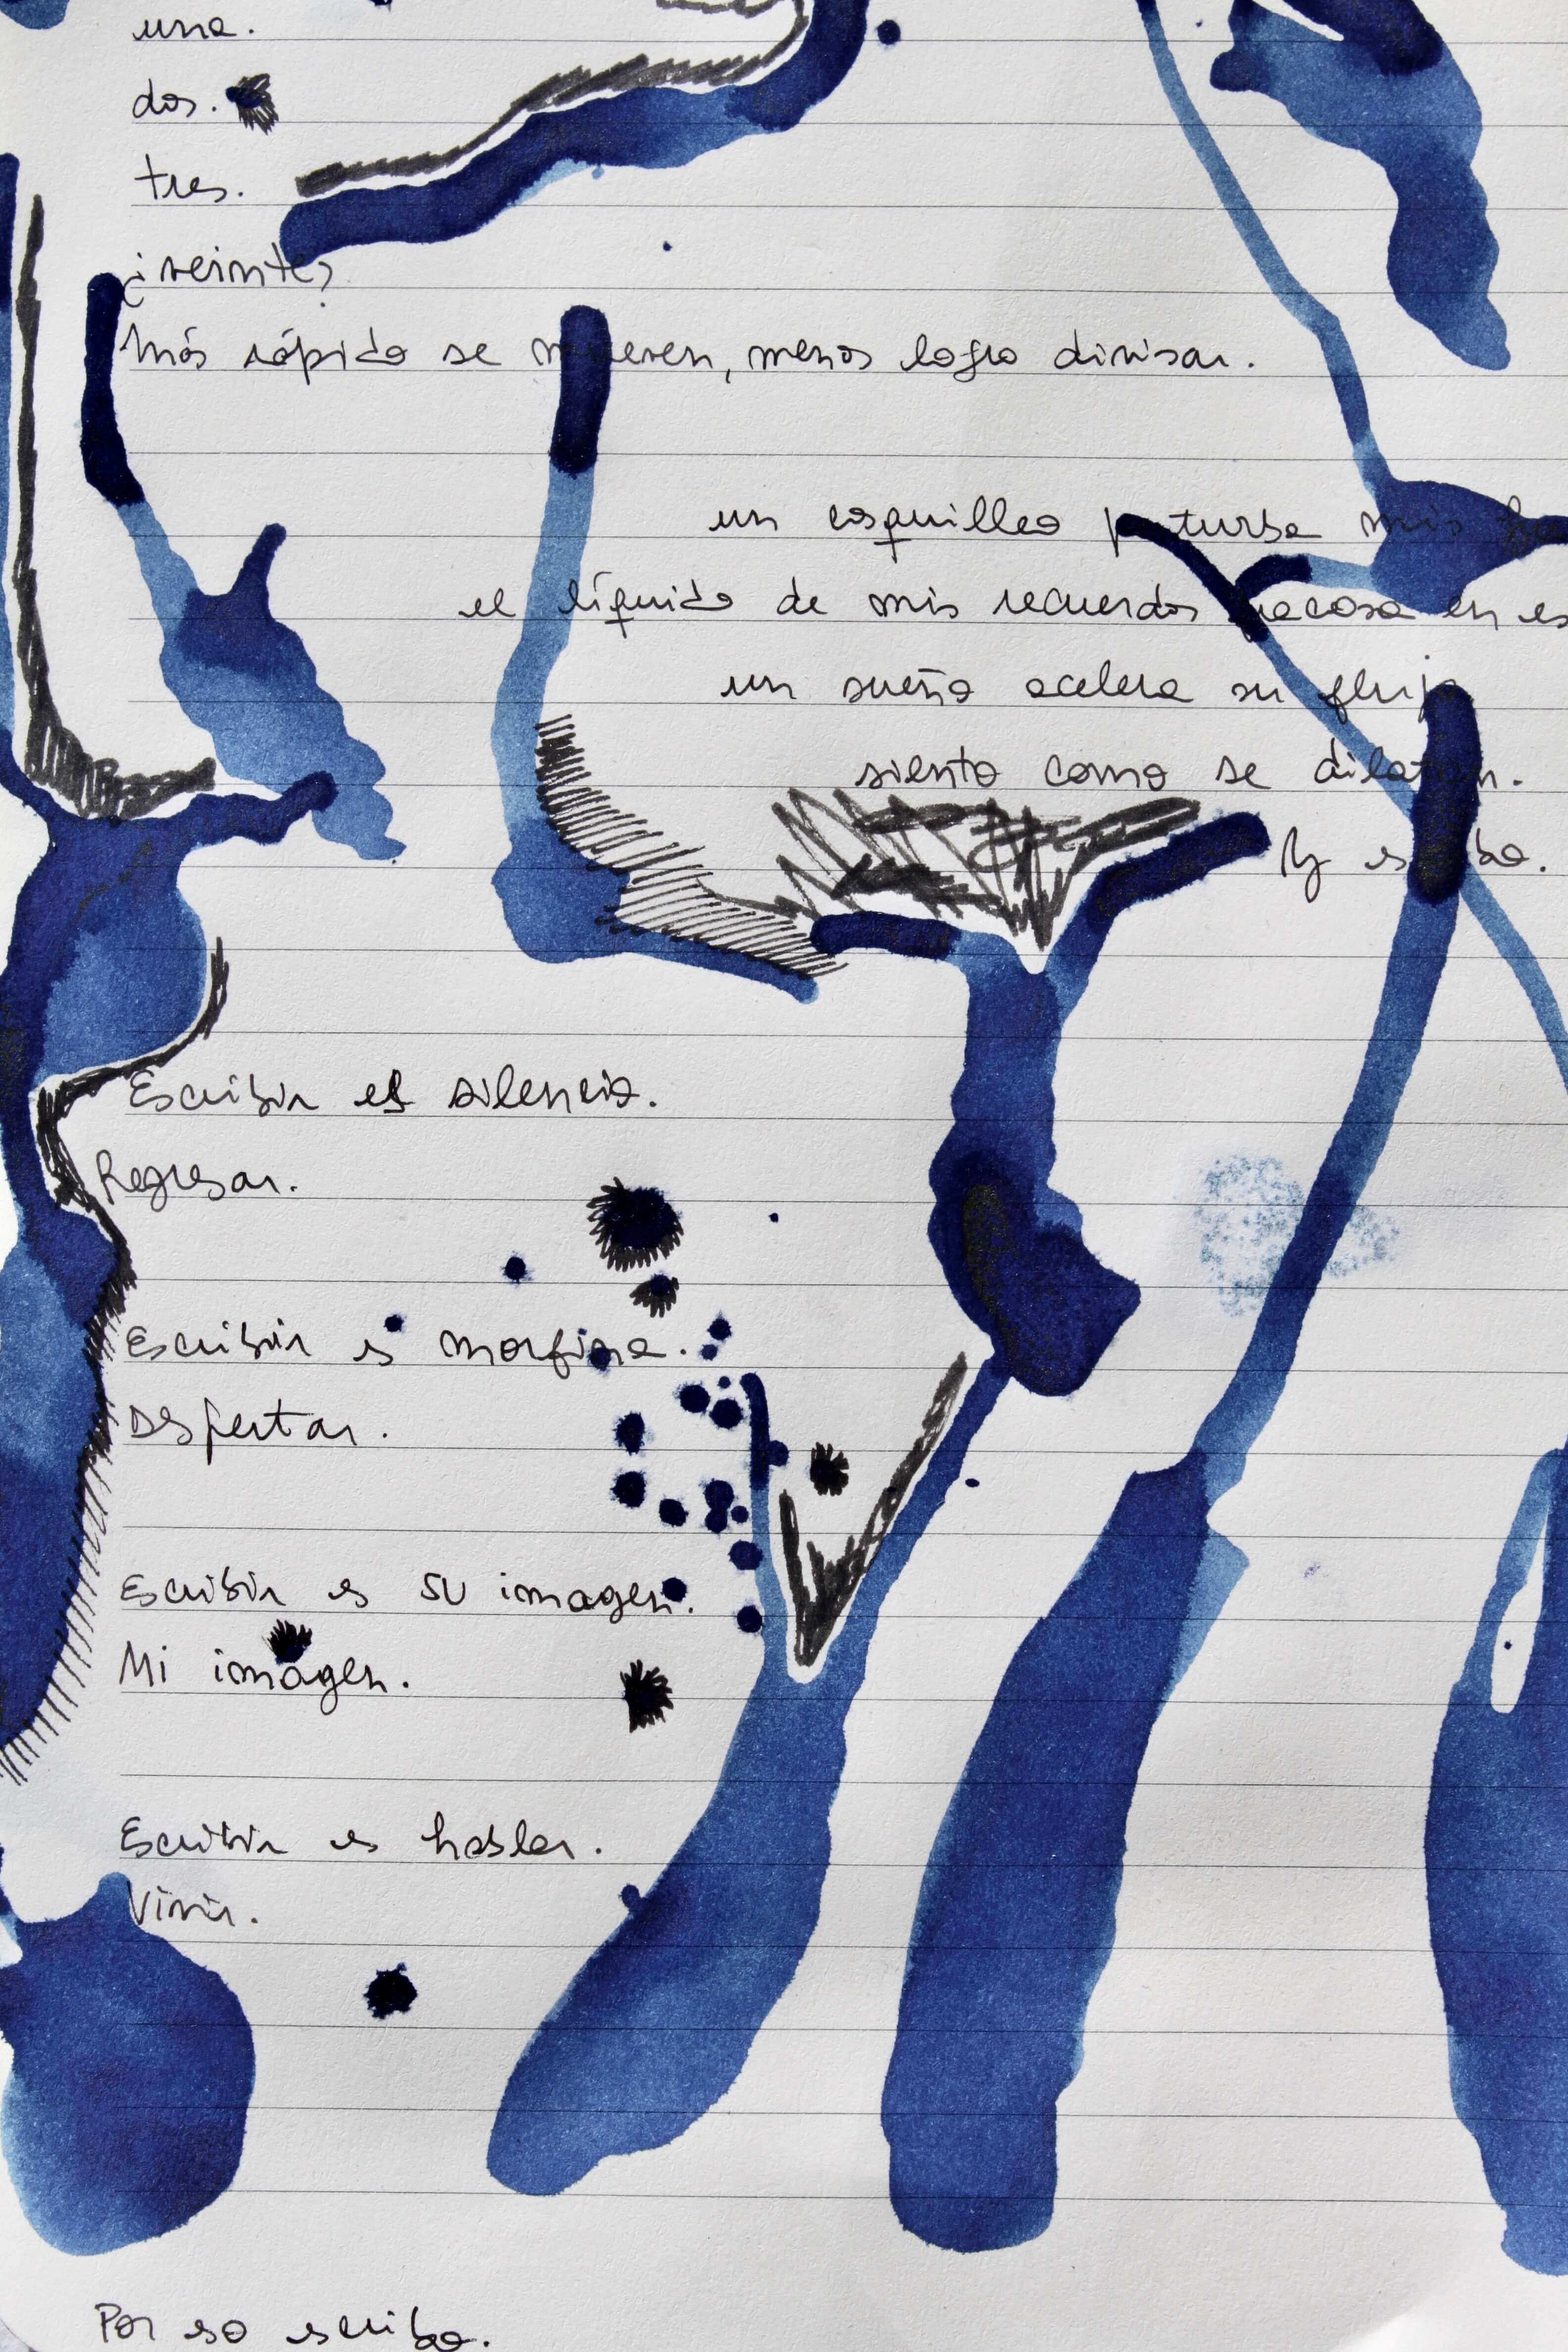 una.
dos.
tres.
¿veinte?
Más rápido se mueven, menos logro divisar.
un cosquilleo perturba mis
el líquido de mis recuerdos reposa en es
un sueño acelera su flujo
siento como se dilatan.
Y escribo.
Escribir es silencio.
Regresar.
Escribir es morfina.
Despertar.
Escribir es su imagen.
Mi imagen.
Escribir es hablar.
Vivir.
Por eso escribo.